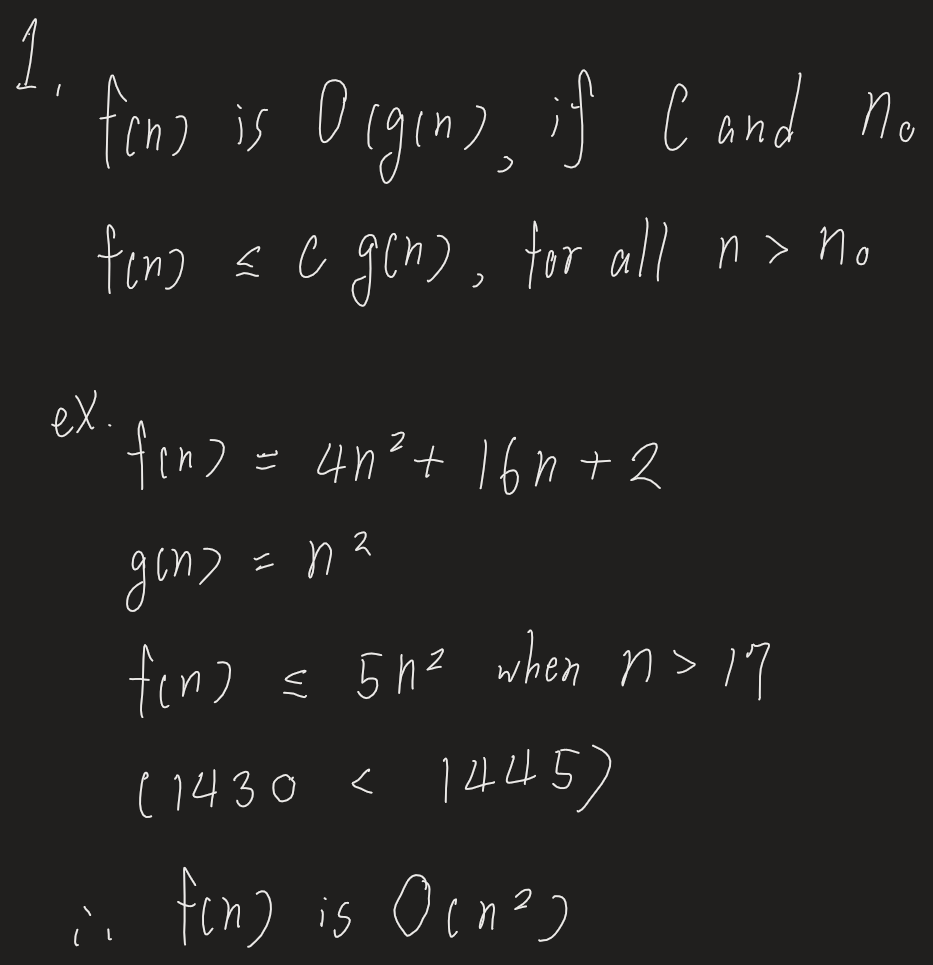 1.
f(n) is O(g(n), if C and n₀
f(n) ≤ C g(n), for all n > n₀
ex.
f(n) = 4n² + 16n + 2
g(n) = n²
f(n) ≤ 5n² when n > 17
(1430 < 1445)
∴ f(n) is O(n²)